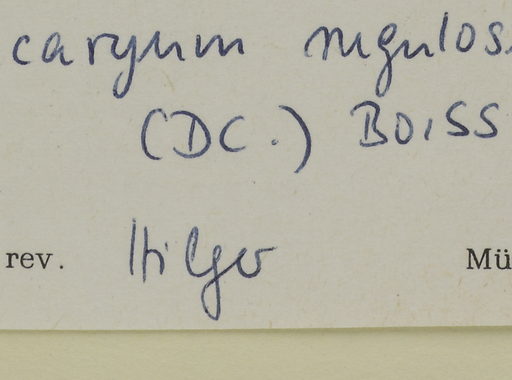 caryum rugulos
(DC.) BOISS
rev. Hilger Mü